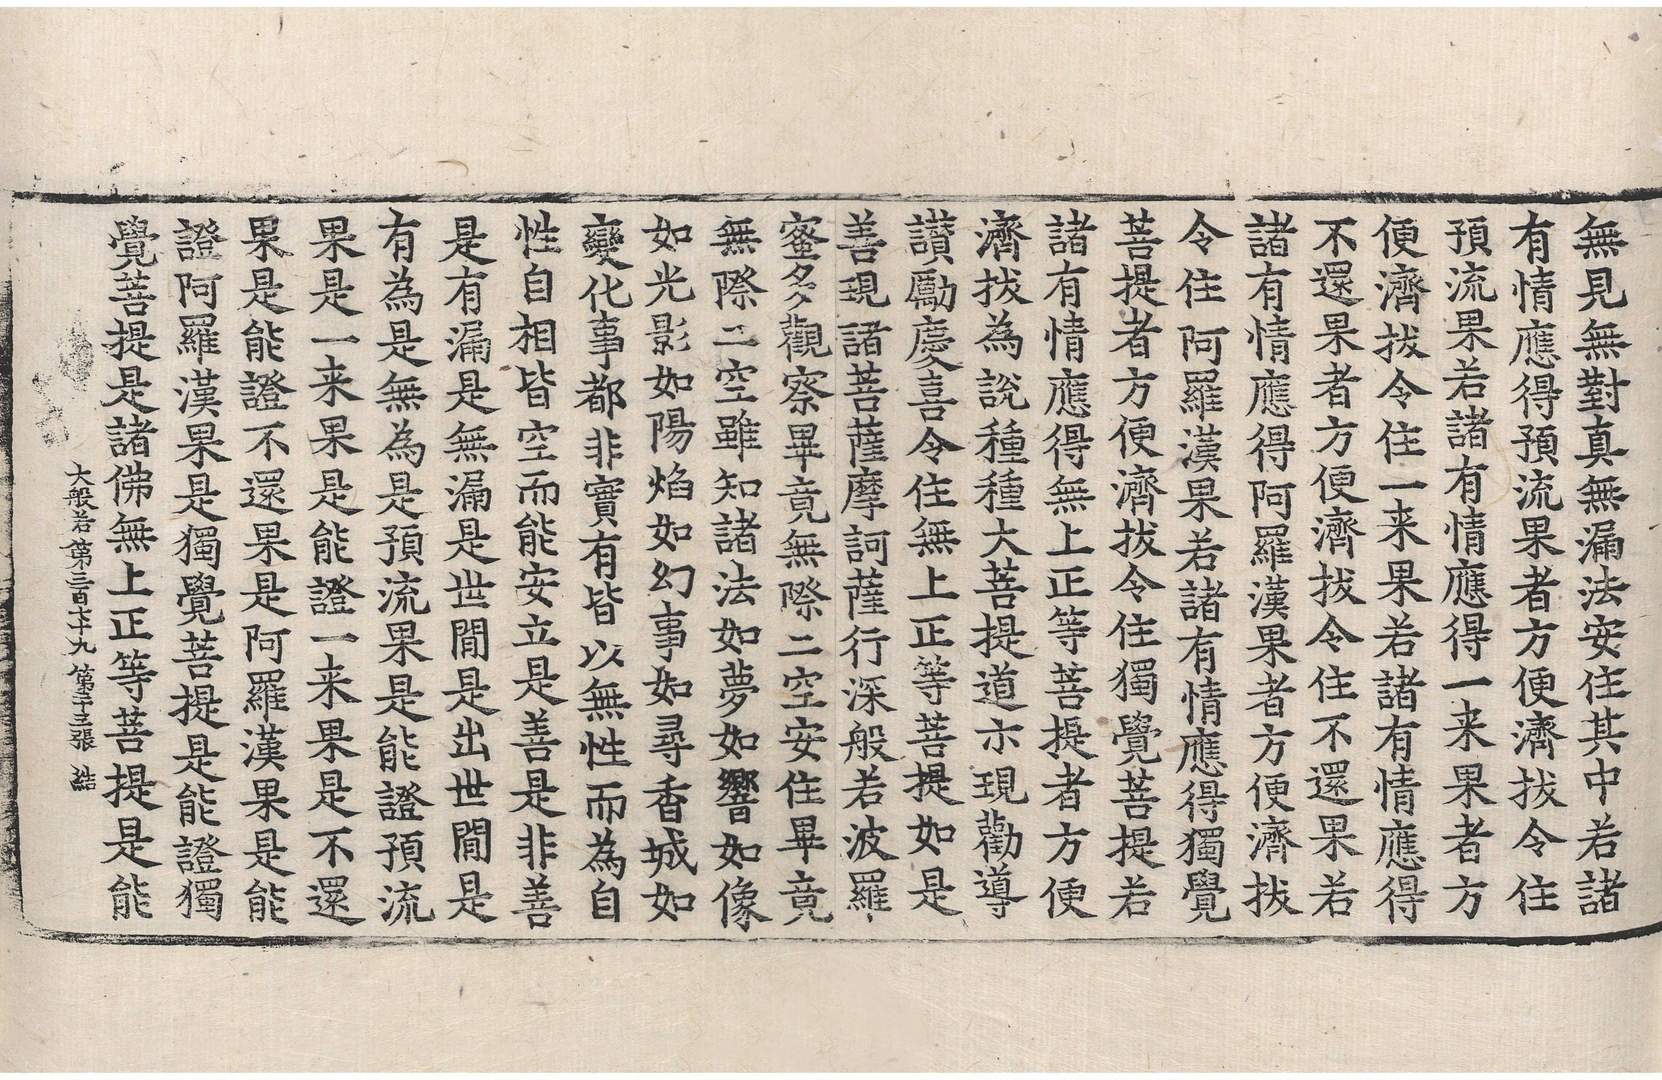 無見無對真無漏法安住其中若諸
有情應得預流果者方便濟拔令住
預流果若諸有情應得一来果者方
便濟拔令住一来果若諸有情應得
不還果者方便濟拔令住不還果若
諸有情應得阿羅漢果者方便濟拔
令住阿羅漢果若諸有情應得獨覺
菩提者方便濟拔令住獨覺菩提若
諸有情應得無上正等菩提者方便
濟拔為說種種大菩提道示現勸導
讃勵慶喜令住無上正等菩提如是
善現諸菩薩摩訶薩行深般若波羅
蜜多觀察畢竟無際二空安住畢竟
無際二空雖知諸法如夢如響如像
如光影如陽焰如幻事如尋香城如
變化事都非實有皆以無性而為自
性自相皆空而能安立是善是非善
是有漏是無漏是世閒是出世閒是
有為是無為是預流果是能證預流
果是一来果是能證一来果是不還
果是能證不還果是阿羅漢果是能
證阿羅漢果是獨覺菩提是能證獨
覺菩提是諸佛無上正等菩提是能
大般若第三百七十九 第二十三張 結